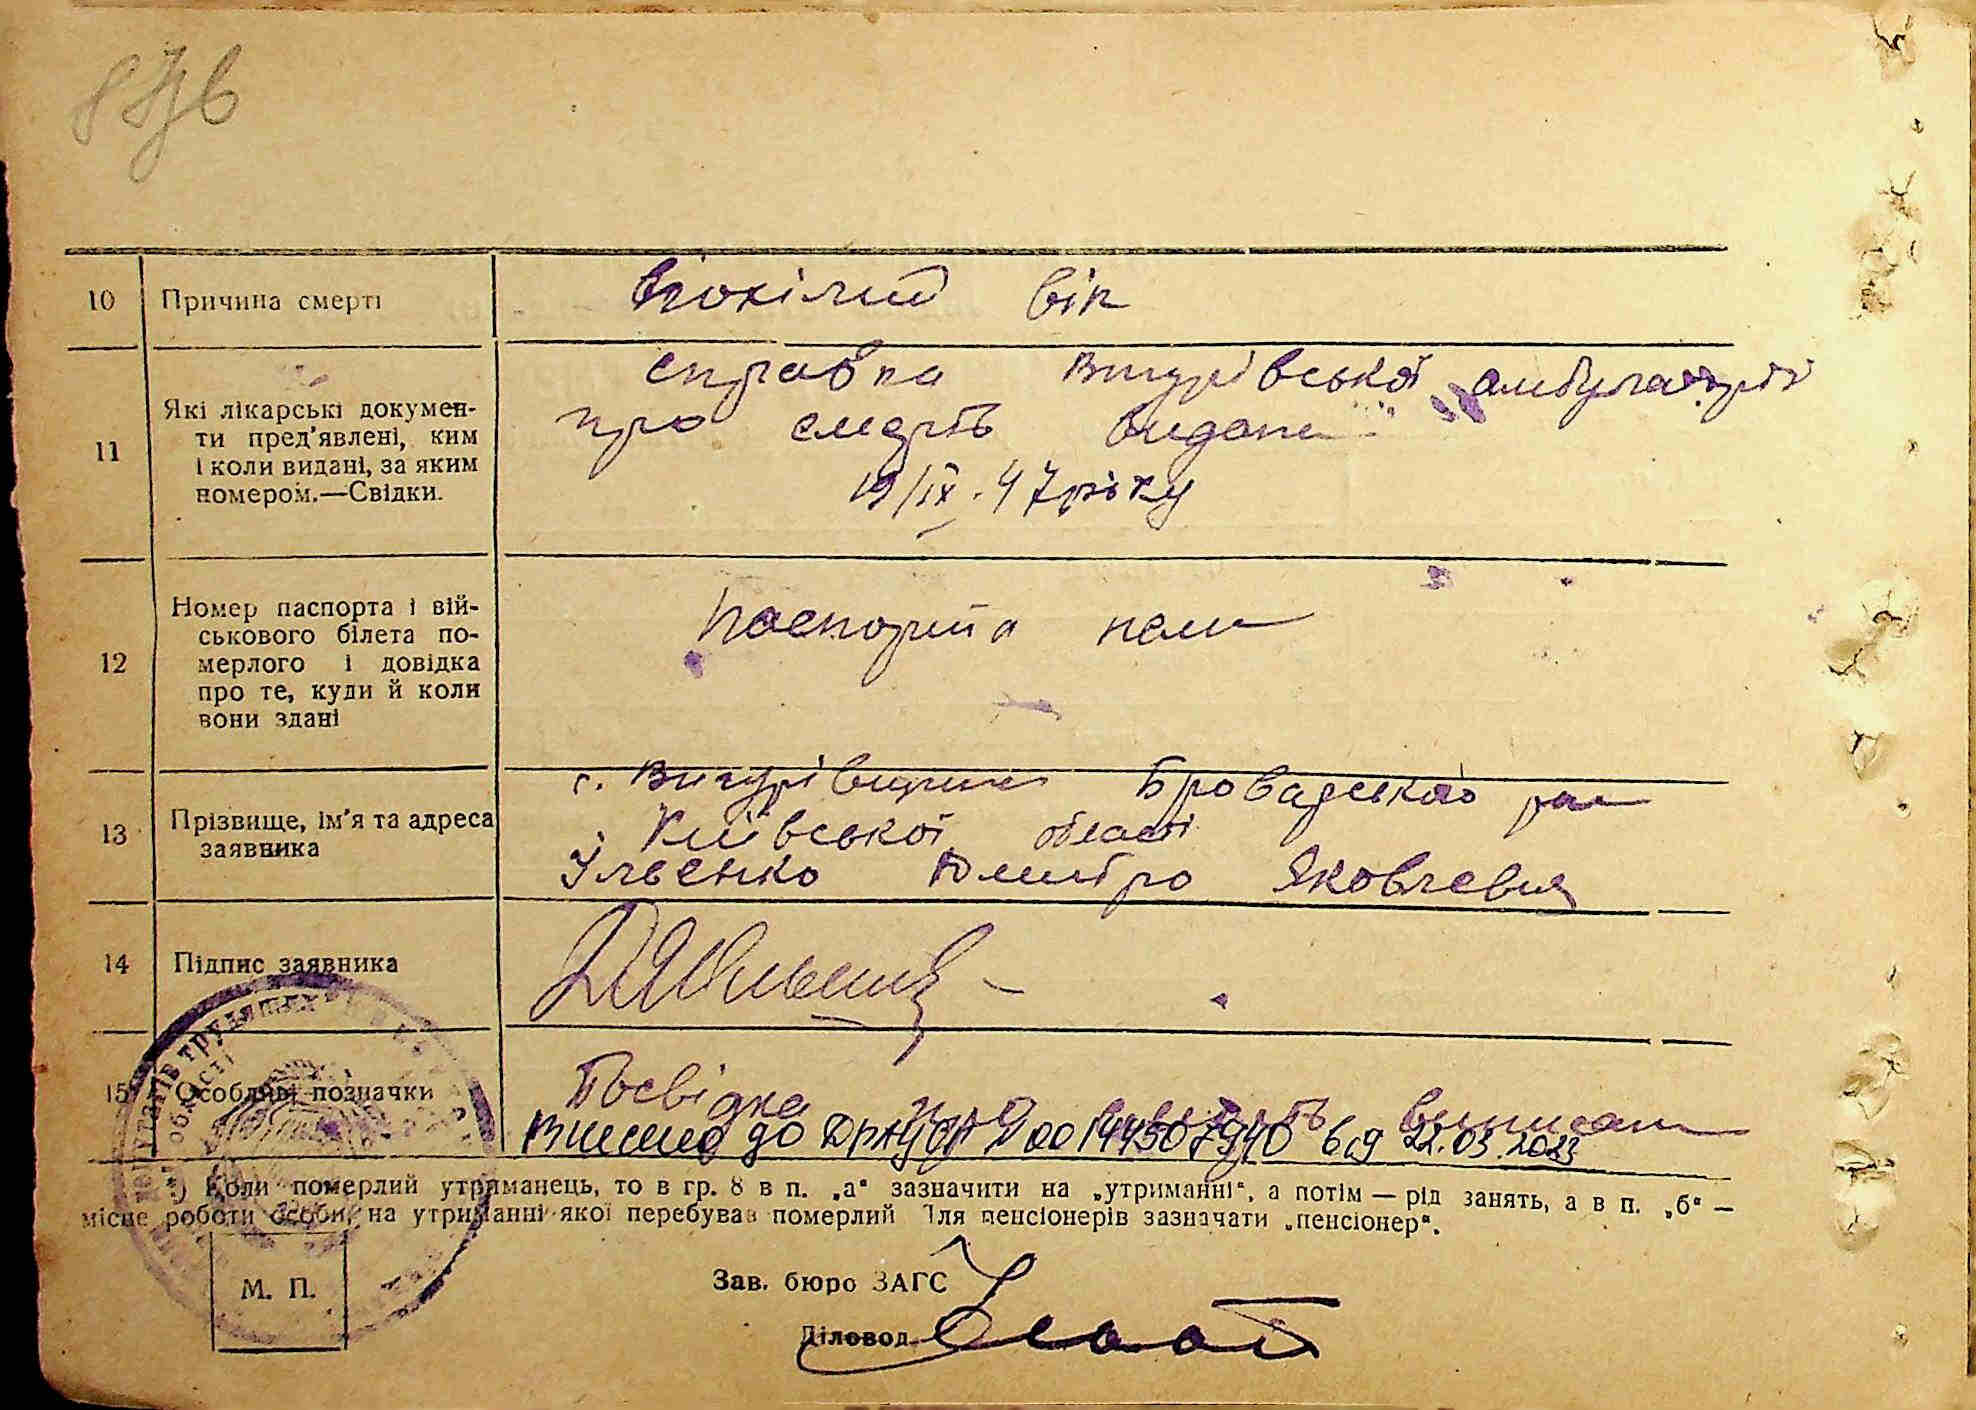 87б
10 Причина смерті похілий вік
11 Які лікарські докумен-
ти пред'явлені, ким
і коли видані, за яким
номером.—Свідки.
справка Вигурівської амбулаторії
про смерть видана
19/IX. 47 року
12 Номер паспорта і вій-
ськового білета по-
мерлого і довідка
про те, куди й коли
вони здані
Паспорта нема
13 Прізвище, ім'я та адреса
заявника
с. Вигурівщина Броварського рай
Київської області
Ільенко Дмитро Яковлевич
14 Підпис заявника
15 Особливі позначки
Посвідка про смерть виписана
Внесено до ДРАЦСГ № 00144507940 від 22.03.2023
*) Коли померлий утриманець, то в гр. 8 в п. „а“ зазначити на „утриманні“, а потім — рід занять, а в п. „б“ —
місце роботи особи, на утриманні якої перебував померлий Для пенсіонерів зазначати „пенсіонер“.
М. П.
Зав. бюро ЗАГС
Діловод
депутатів трудящих
області